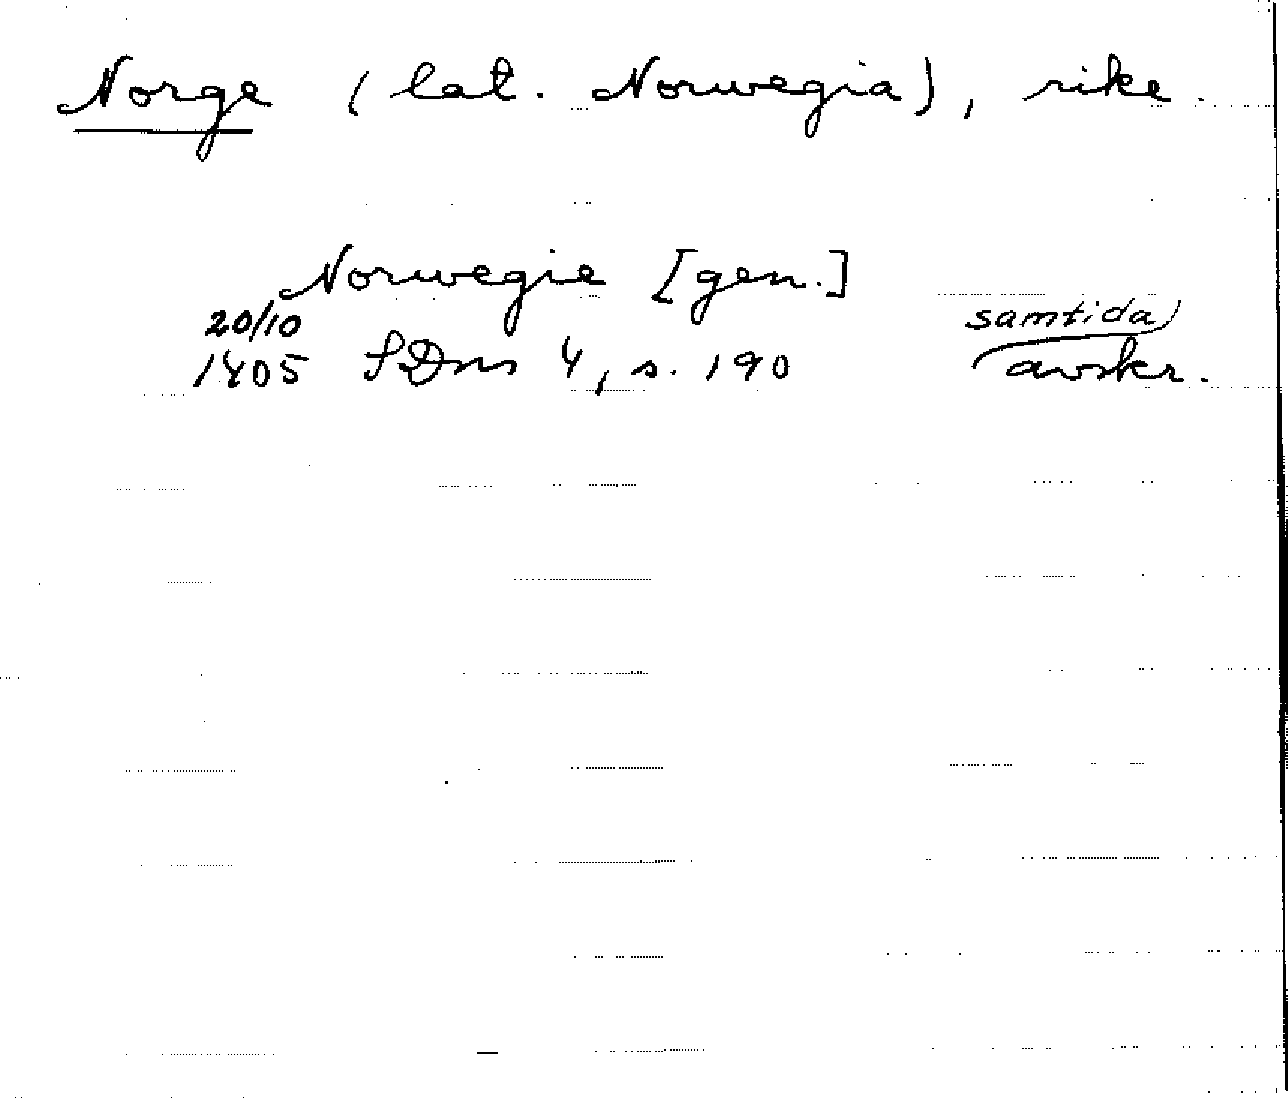 Norge (lat. Norwegia), rike.
Norwegie [gen.]
20/10 samtida
1405 SDns 4, s. 190 avskr.